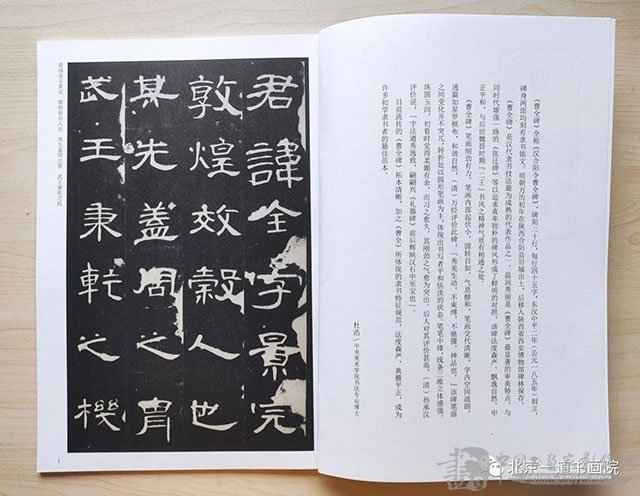 《曹全碑》全称《汉合阳令曹全碑》，碑阳二十行，每行四十五字，东汉中平二年（公元一八五年）刻立，
碑身两面均刻有隶书铭文，明朝万历初年在陕西合阳县旧城出土，后移入陕西省西安博物馆碑林保存。
《曹全碑》是汉代隶书技法最为成熟的代表作品之一，温润秀丽是《曹全碑》最显著的审美特点，与
同时代雄强一路的《张迁碑》等以追求真率拙朴的碑风形成了鲜明的对照，该碑法度森严、飘逸自然、中
正平和，与后世魏晋时期「二王」书风之精神气质有相通之处。
《曹全碑》笔画细劲有力，笔画内部起伏小，圆转自如，气息醇和，笔画交代清晰，字内空间疏朗，
通篇如星罗棋布，和谐自然，（清）万经评价此碑：「秀美生动，不束缚、不驰骤，神品也。」该碑笔画
之间变化并不突兀，转折处以圆形笔画为主，体现出书写者平和恬淡的状态，笔笔中锋，线条三维立体感强，
珠圆玉润，初看时觉得柔媚有余，而习之愈久，其刚劲之气愈为突出，后人对其评价甚高，（清）孙承泽
评价说：「字法遒秀逸致，翩翩兴《礼器碑》前后辉映汉石中至宝也」。
目前流传的《曹全碑》拓本清晰，加之《曹全》所体现的隶书特征规范，法度森严、典雅平正，成为
许多初学隶书者的最佳范本。
杜浩/中央美术学院书法专业博士
君諱全字景完
敦煌效穀人也
其先蓋周之胄
武王秉乾之機
君讳全字景完 敦煌效谷人也 其先盖周之胄 武王秉乾之机
1
北京一得书画院